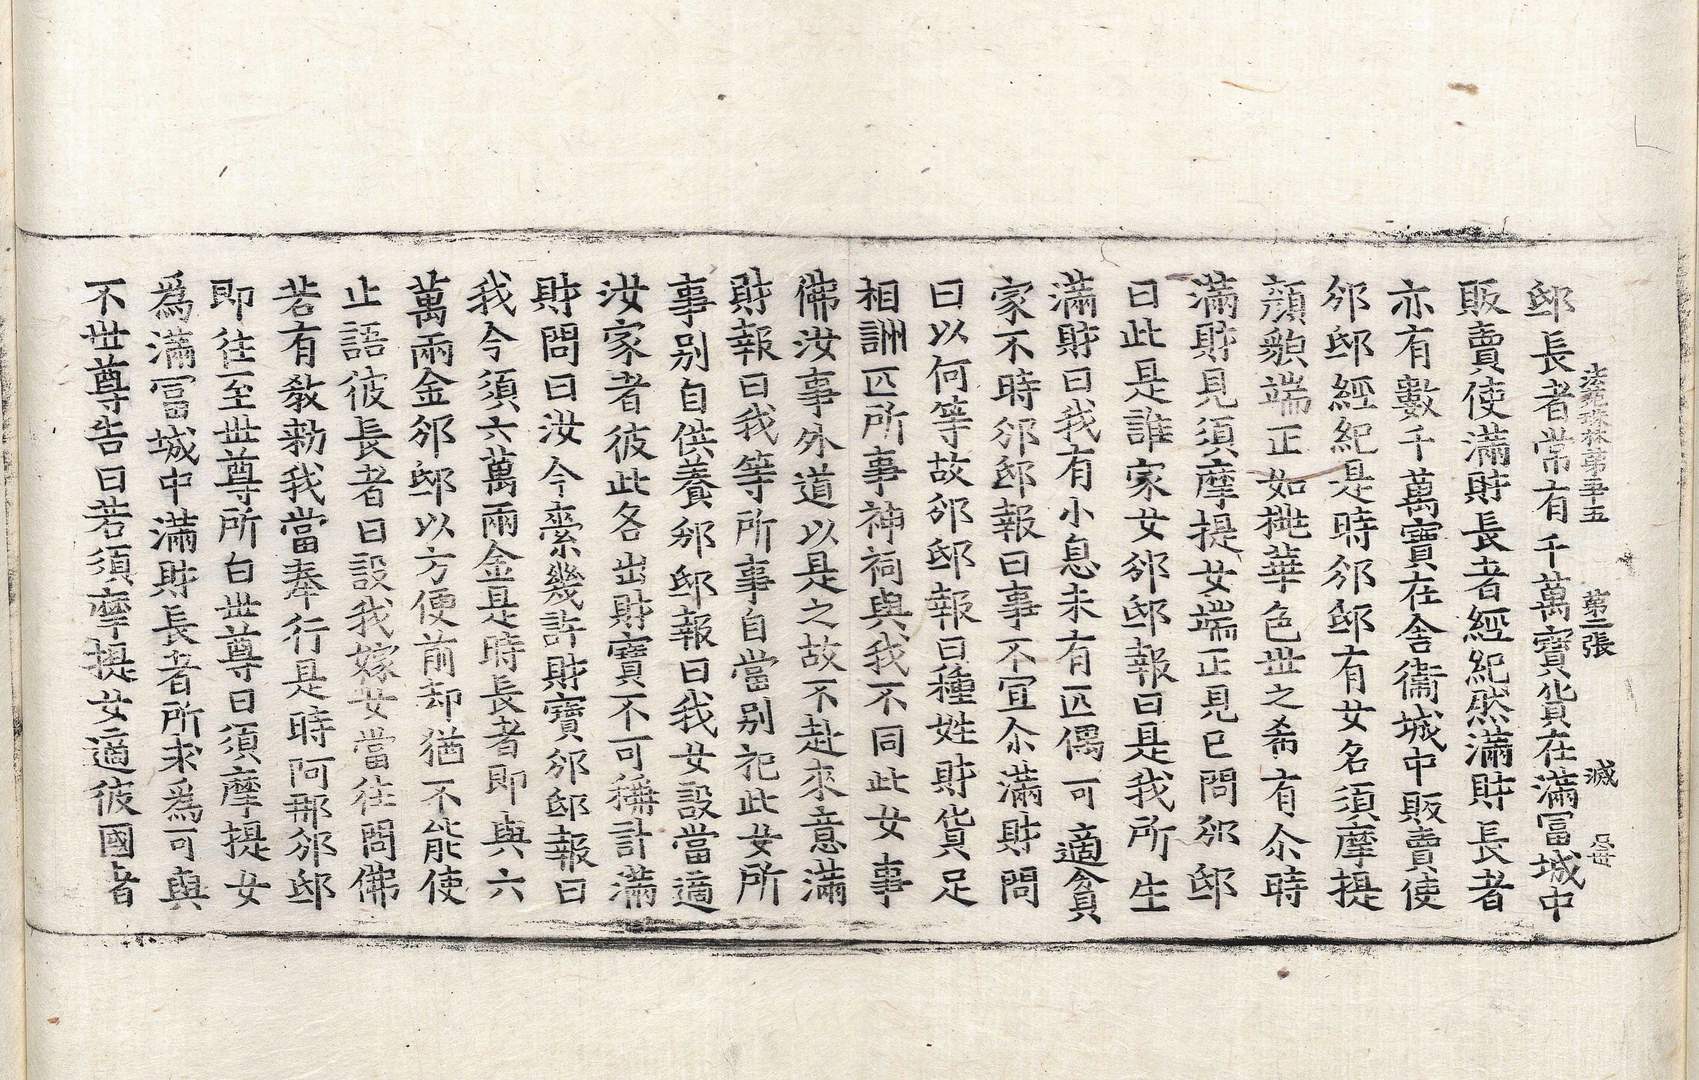 法苑珠林第五十五 第二張 滅
邸長者常有千萬寶貨在滿冨城中
販賣使滿財長者經紀然滿財長者
亦有數千萬寶在舍衛城中販賣使
邠邸經紀是時邠邸有女名須摩提
顔貌端正如桃華色世之希有尒時
滿財見須摩提女端正見已問邠邸
曰此是誰家女邠邸報曰是我所生
滿財曰我有小息未有匹偶可適貧
家不時邠邸報曰事不宜尒滿財問
曰以何等故邠邸報曰種姓財貨足
相詶匹所事神祠與我不同此女事
佛汝事外道以是之故不赴來意滿
財報曰我等所事自當别祀此女所
事别自供養邠邸報曰我女設當適
汝家者彼此各出財寶不可稱計滿
財問曰汝今索幾許財寶邠邸報曰
我今須六萬兩金是時長者即與六
萬兩金邠邸以方便前却猶不能使
止語彼長者曰設我嫁女當往問佛
若有教勑我當奉行是時阿那邠邸
即往至世尊所白世尊曰須摩提女
爲滿冨城中滿財長者所求爲可與
不世尊告曰若須摩提女適彼國者